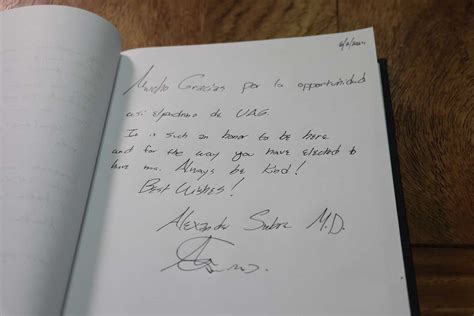 Mucho Gracias por la opportunidad
asi de UAG.
It is such an honor to be here
and for the way you have elected to
have me. Always be kind!
Best Wishes!
Alexander M.D.